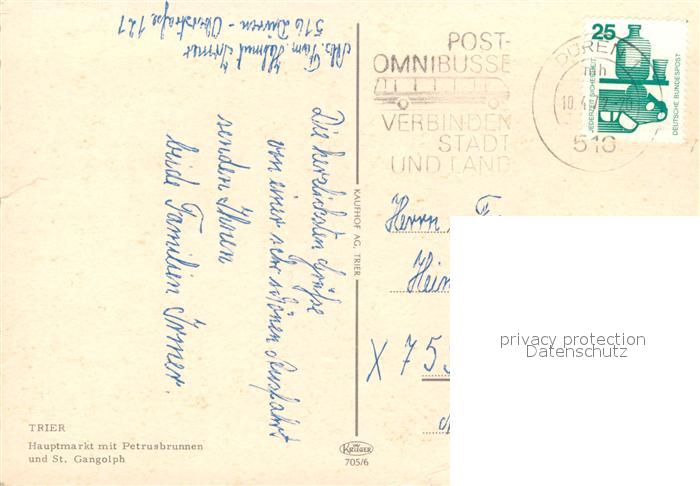 Abs. Fam. Helmut Irmer
516 Düren - Oberstraße 121
Die herzlichsten Grüße
von einer sehr schönen Ausfahrt
senden Ihnen
beide Familien Irmer.
TRIER
Hauptmarkt mit Petrusbrunnen
und St. Gangolph
KAUFHOF AG, TRIER
KRÜGER
705/6
POST-
OMNIBUSSE
VERBINDEN
STADT
UND LAND
DÜREN
mh
10.4.
516
25
JEDERZEIT SICHERHEIT
DEUTSCHE BUNDESPOST
Herrn
X 75
privacy protection
Datenschutz